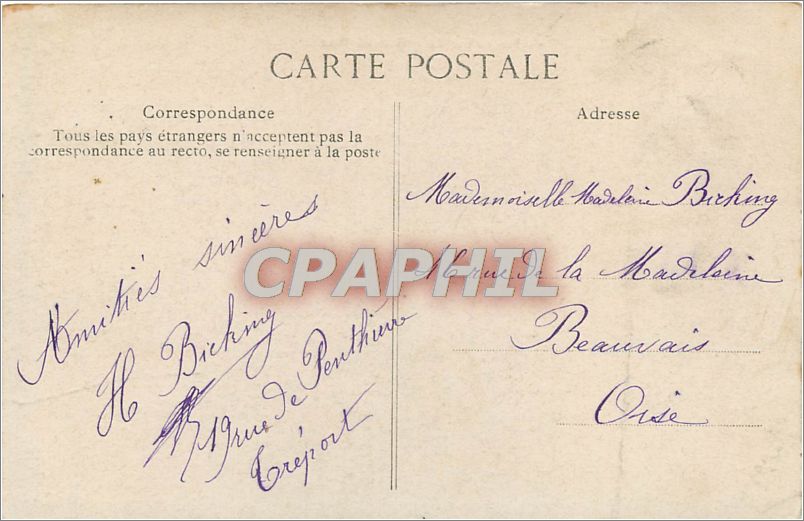 CARTE POSTALE
Correspondance
Tous les pays étrangers n'acceptent pas la
correspondance au recto, se renseigner à la poste
Amitiés sincères
H Bicking
19 rue de Penthièvre
Tréport
Adresse
Mademoiselle Madeleine Bicking
16 rue de la Madeleine
Beauvais
Oise
CPAPHIL